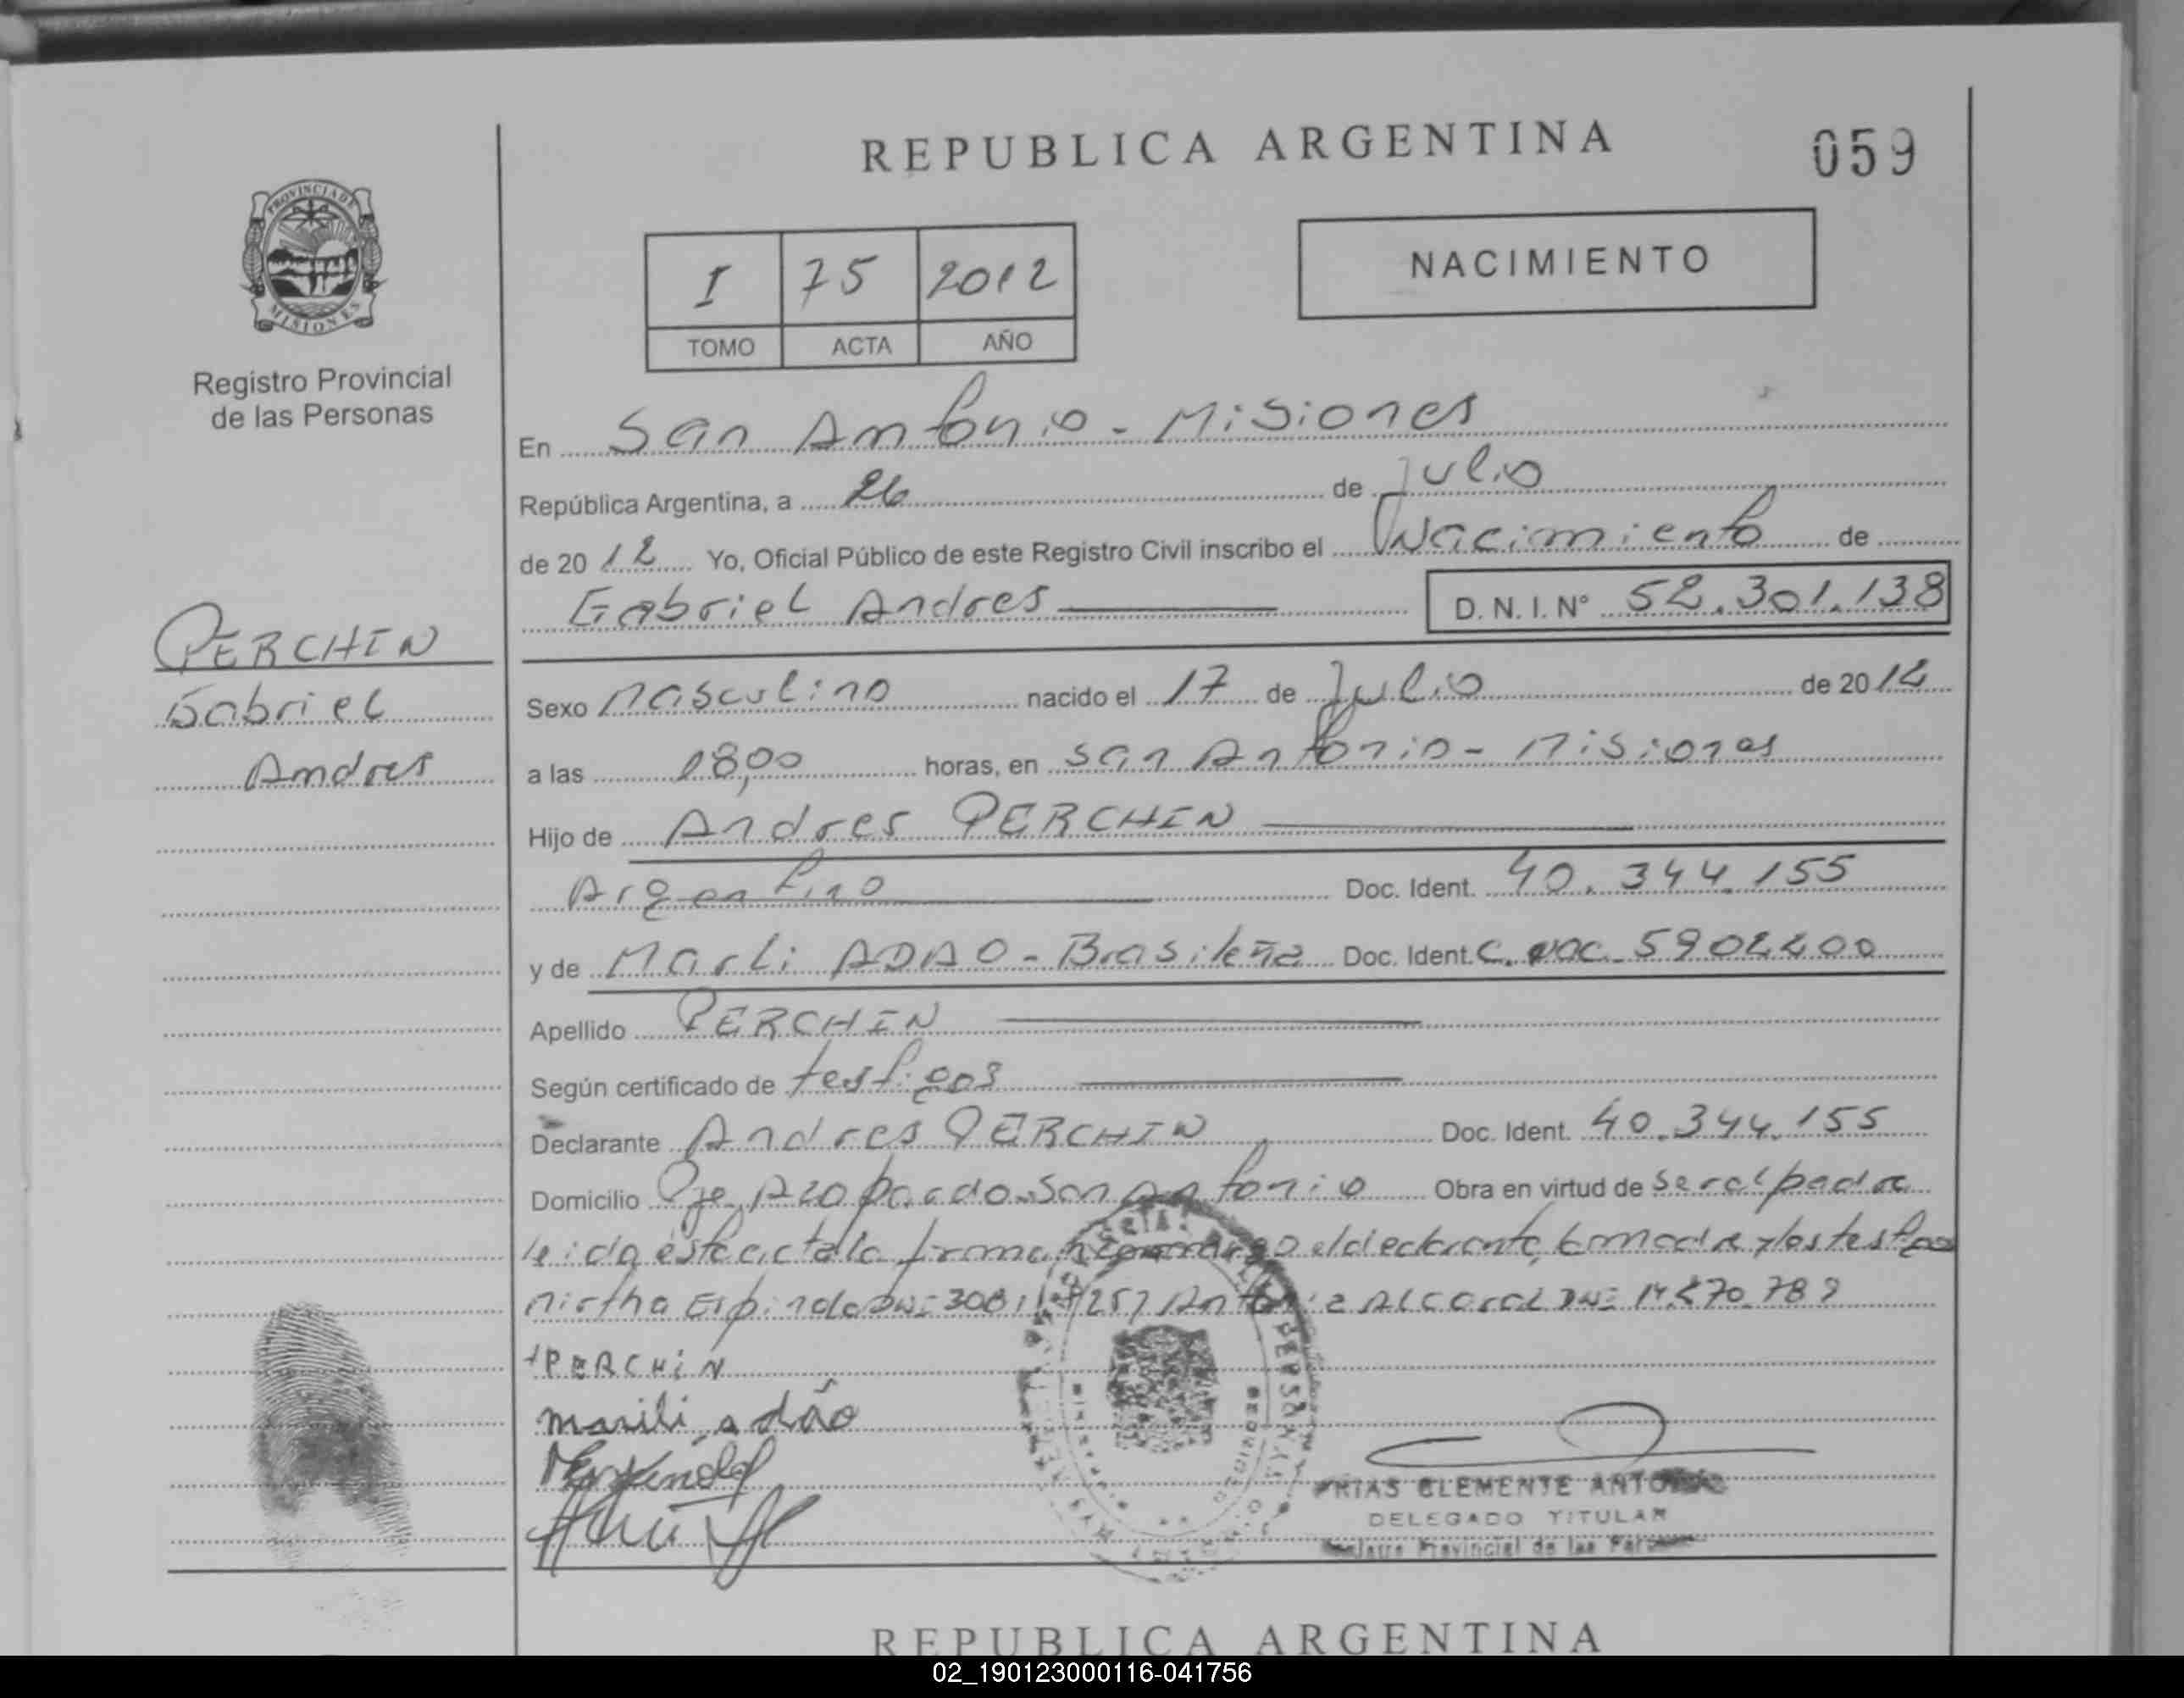 REPUBLICA ARGENTINA
059
PROVINCIA DE
MISIONES
Registro Provincial
de las Personas
I 75 2012
TOMO ACTA AÑO
NACIMIENTO
En San Antonio - Misiones
República Argentina, a 26 de Julio
de 20 12 Yo, Oficial Público de este Registro Civil inscribo el Nacimiento de
Gabriel Andres D. N. I. N° 52.301.138
PERCHIN
Gabriel
Andres
Sexo Masculino nacido el 17 de Julio de 20 12
a las 18,00 horas, en San Antonio - Misiones
Hijo de Andres PERCHIN
Argentino Doc. Ident. 40.344.155
y de Marli ADAO - Brasileña Doc. Ident. C. 5902200
Apellido PERCHIN
Según certificado de testigos
Declarante Andres PERCHIN Doc. Ident. 40.344.155
Domicilio Pje Azopardo - San Antonio Obra en virtud de ser el padre
leida este acta la firma el declarante, la madre y los testigos
Mirtha Espindola Antonia Alcaraz
PERCHIN
marili adão
FRIAS CLEMENTE ANTONIO
DELEGADO TITULAR
Provincial de las
REPUBLICA ARGENTINA
02_190123000116-041756